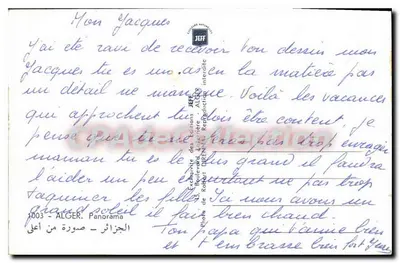 Mon Jacques
J'ai été ravi de recevoir ton dessin mon
Jacques tu es un as en la matière pas
un détail ne manque. Voilà les vacances
qui approchent tu dois être content, je
pense que tu ne feras pas trop enrager
maman tu es le plus grand il faudra
l'aider un peu et surtout ne pas trop
taquiner les filles. Ici nous avons un
grand soleil il fait bien chaud.
Ton papa qui t'aime bien
et t'embrasse bien fort
JEF
1003 - ALGER. Panorama
الجزائر - صورة من أعلى